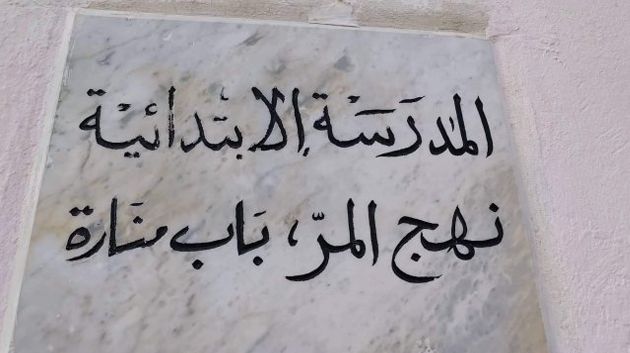 المدرَسَة الإبتدائيّة
نهج المرّ، بَاب منَارة